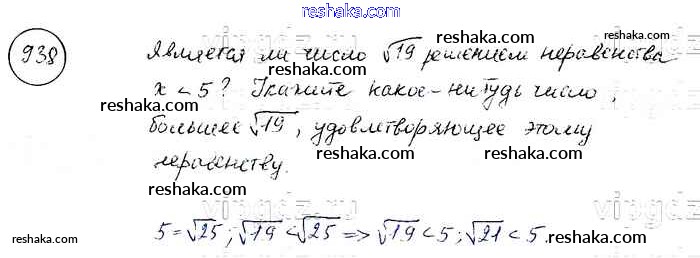 reshaka.com
938
Является ли число √19 решением неравенства
x < 5? Укажите какое-нибудь число,
большее √19, удовлетворяющее этому
неравенству.
5=√25; √19 < √25 => √19 < 5; √21 < 5.
reshaka.com
reshaka.com
reshaka.com
reshaka.com
reshaka.com
reshaka.com
reshaka.com
reshaka.com
reshaka.com